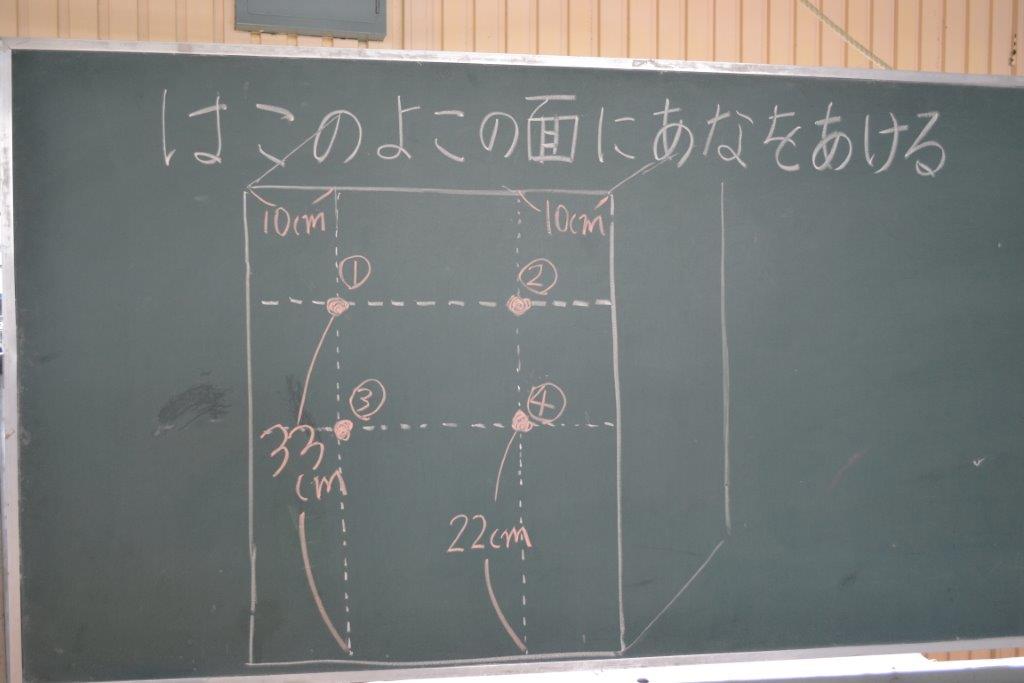 はこのよこの面にあなをあける
10cm 10cm
① ②
③ ④
33
cm
22cm